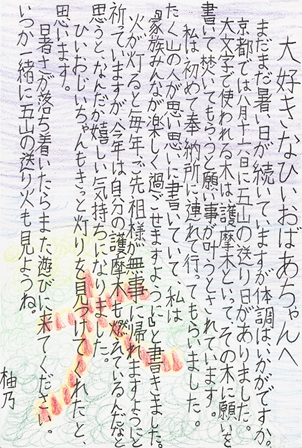 大好きなひいおばあちゃんへ
まだまだ暑い日が続いていますが体調はいかがですか。
京都では八月十六日に五山の送り火がありました。
大文字で使われる木は、護摩木といって、その木に願いを
書いて焚いてもらうと願い事が叶うとされています。
私は初めて奉納所に連れて行ってもらいました。
たく山の人が思い思いに書いていて、私は
「家族みんなが楽しく過ごせますように」と書きました。
火が灯ると毎年ご先祖様が無事に帰れますようにと
祈っていますが、今年は自分の護摩木も燃えているんだなと
思うと、なんだか嬉しい気持ちになりました。
ひいおじいちゃんもきっと灯りを見つけてくれたと、
思います。
暑さが落ち着いたらまた遊びに来てください。
いつか一緒に五山の送り火も見ようね。
柚乃